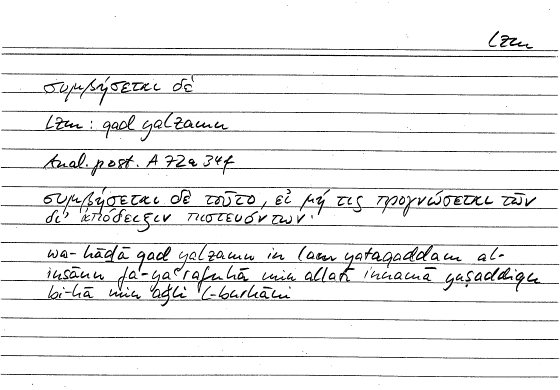 lzm
συμβήσεται δὲ
lzm : qad yalzamu
Anal. post. A 72a 34f
συμβήσεται δὲ τοῦτο, εἰ μή τις προγνώσεται τῶν
δι' ἀπόδειξιν πιστευόντων.
wa-hāḏā qad yalzamu in lam yataqaddam al-
insānu fa-yaʿrafuhā min allatī innamā yuṣaddiqu
bi-hā min aǧli l-burhāni